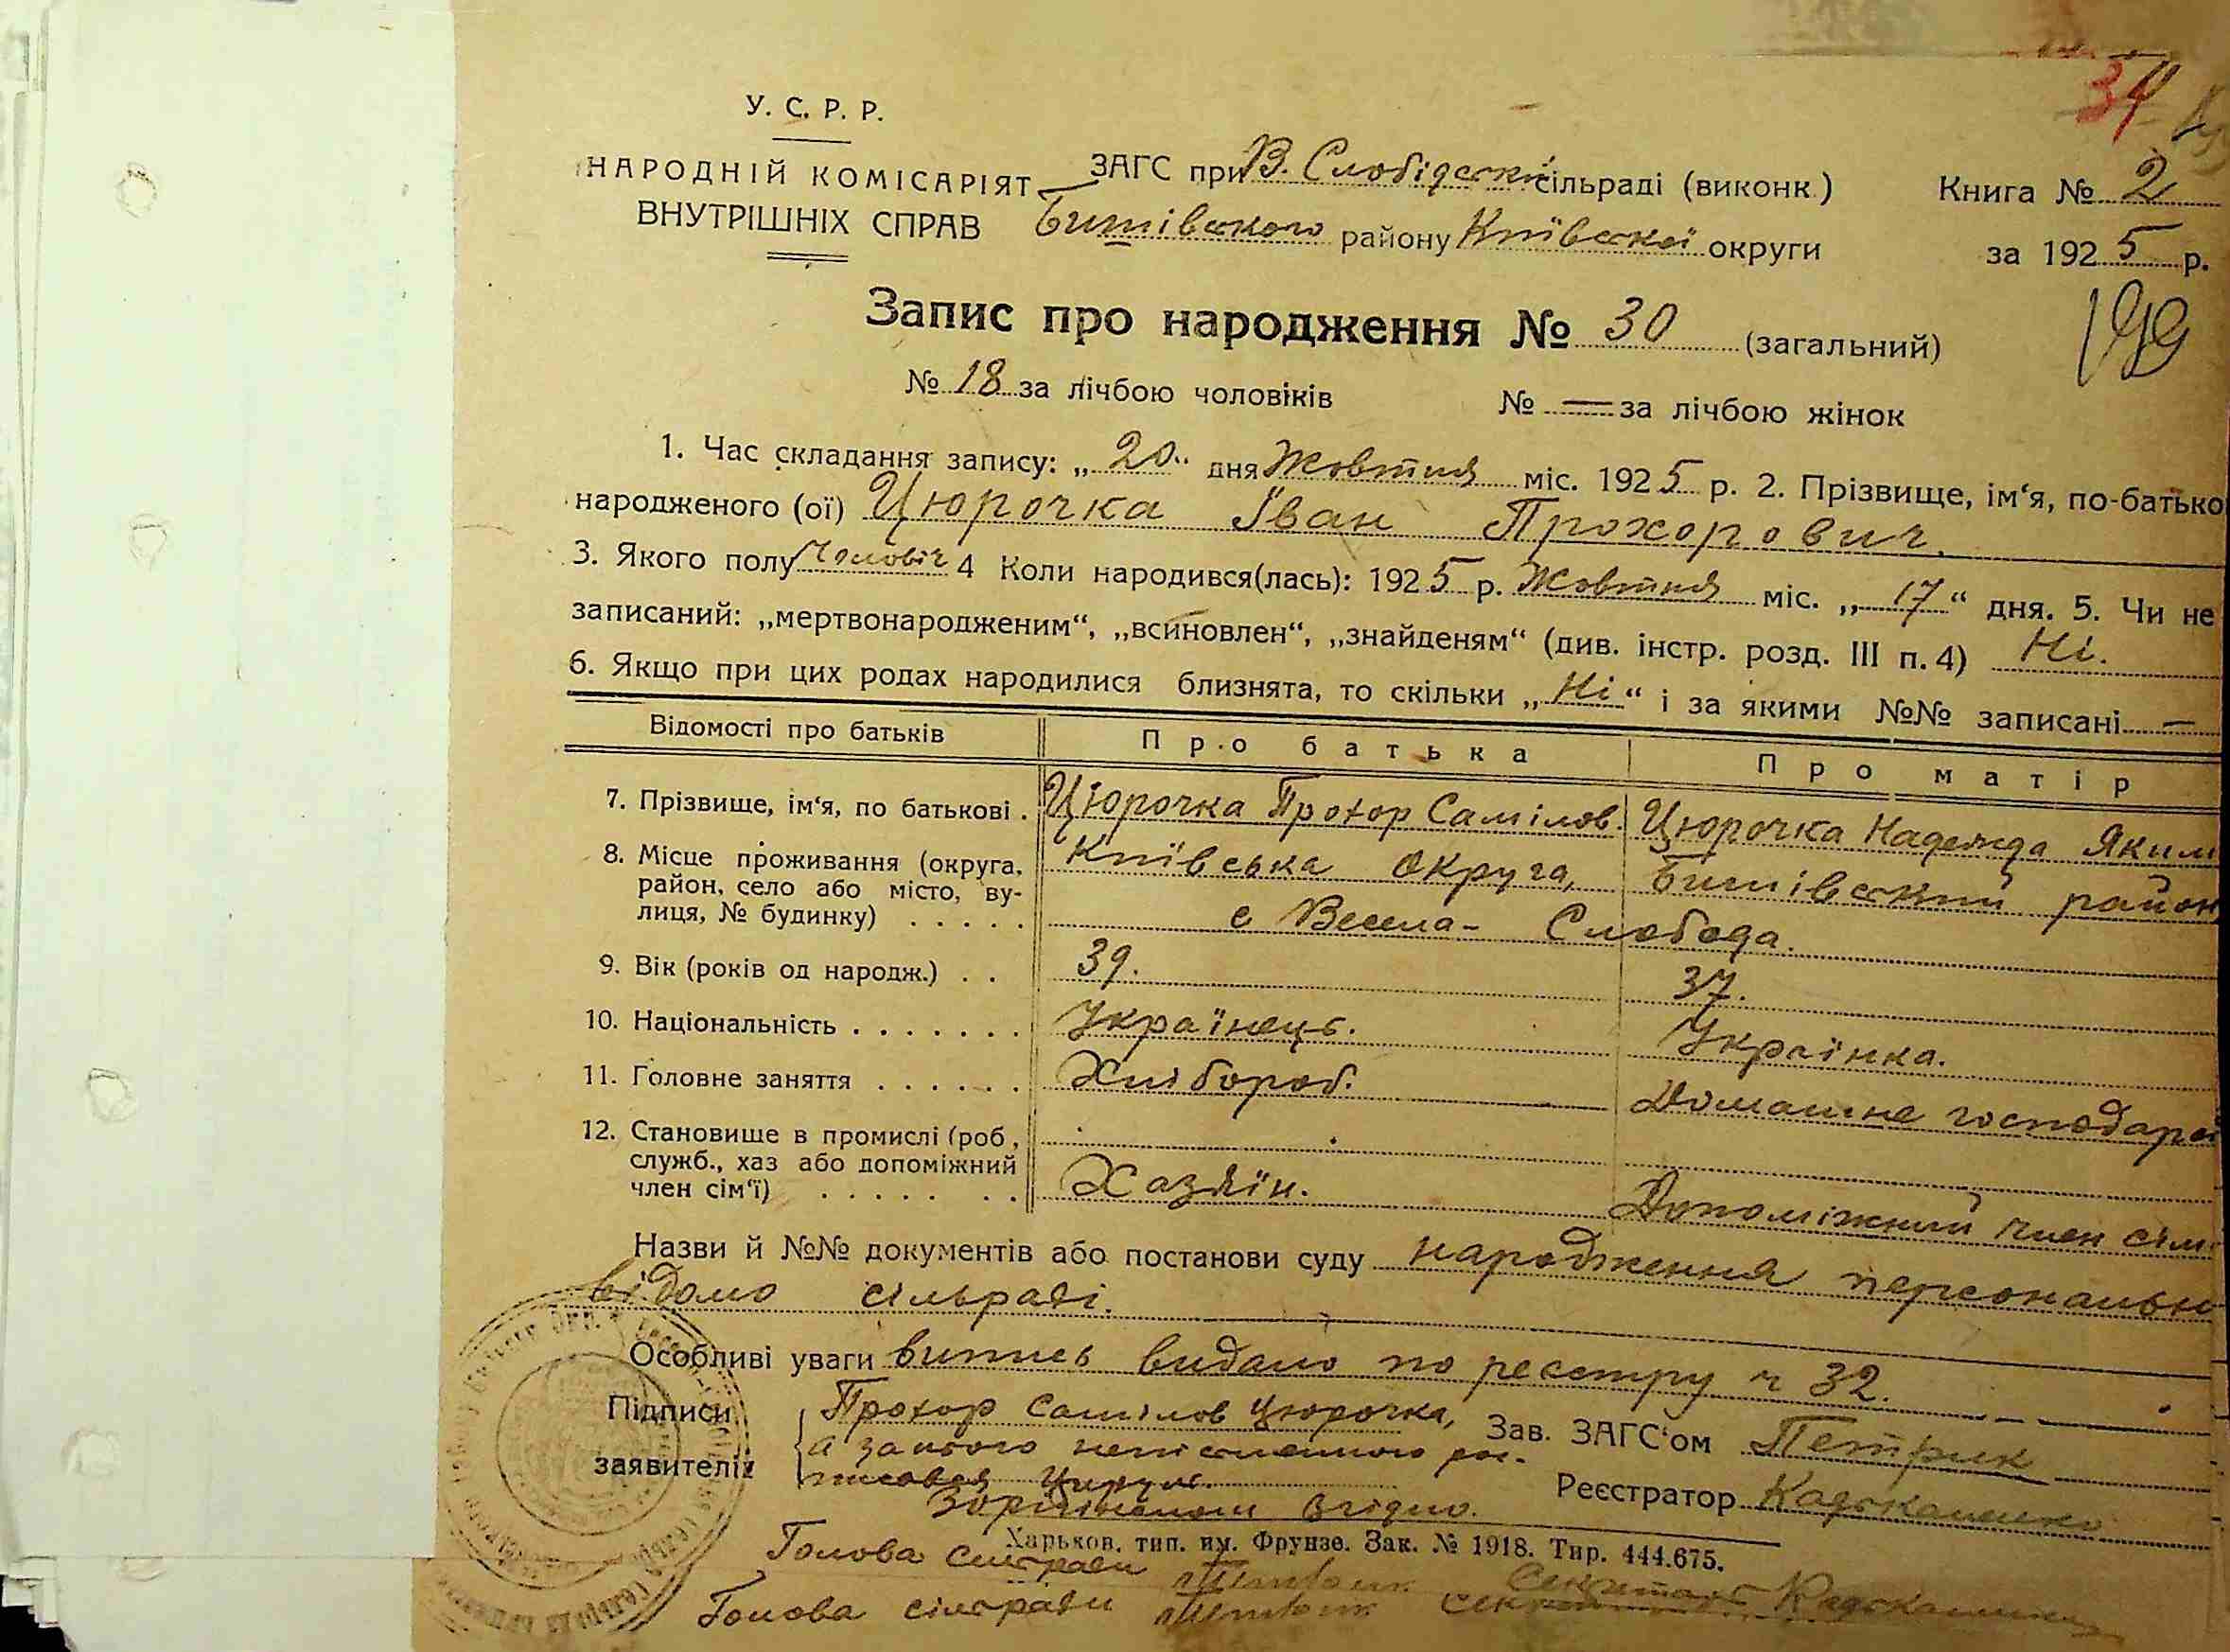 34
У. С. Р. Р.
НАРОДНІЙ КОМІСАРІЯТ
ВНУТРІШНІХ СПРАВ
ЗАГС при В. Слобідській сільраді (виконк.)
Бишівського району Київської округи
Книга № 2
за 1925 р.
Запис про народження № 30 (загальний)
199
№ 18 за лічбою чоловіків № — за лічбою жінок
1. Час складання запису: „20“ дня Жовтня міс. 1925 р. 2. Прізвище, ім‘я, по-батько
народженого (ої) Цюрочка Іван Прохорович.
3. Якого полу Чоловіч 4 Коли народився(лась): 1925 р. Жовтня міс. „17“ дня. 5. Чи не
записаний: „мертвонародженим“, „всиновлен“, „знайденям“ (див. інстр. розд. III п. 4) Ні.
6. Якщо при цих родах народилися близнята, то скільки „Ні“ і за якими №№ записані —
Відомості про батьків Про батька Про матір
7. Прізвище, ім‘я, по батькові . Цюрочка Прохор Самілов. Цюрочка Надежда Яким
8. Місце проживання (округа, район, село або місто, ву-
лиця, № будинку) . . . . .
Київська Округа, Бишівський район
с Весела - Слобода.
9. Вік (років од народж.) . . 39. 37.
10. Національність . . . . . . . Українець. Українка.
11. Головне заняття . . . . . . Хлібороб. Домашне господар
12. Становище в промислі (роб.,
служб., хаз або допоміжний
член сім‘ї) . . . . . . .
Хазяїн. Допоміжний член сім
Назви й №№ документів або постанови суду народження персональн
відомо сільраді.
Особливі уваги випись видано по реєстру ч 32.
Підписи
заявителів
Прохор Самілов Цюрочка,
а за його неписьменного рос-
писався
Зав. ЗАГС‘ом Петрик
Реєстратор
З орігіналом згідно.
Харьков, тип. им. Фрунзе. Зак. № 1918. Тир. 444.675.
Голова сільради Секретарь
Голова сільради